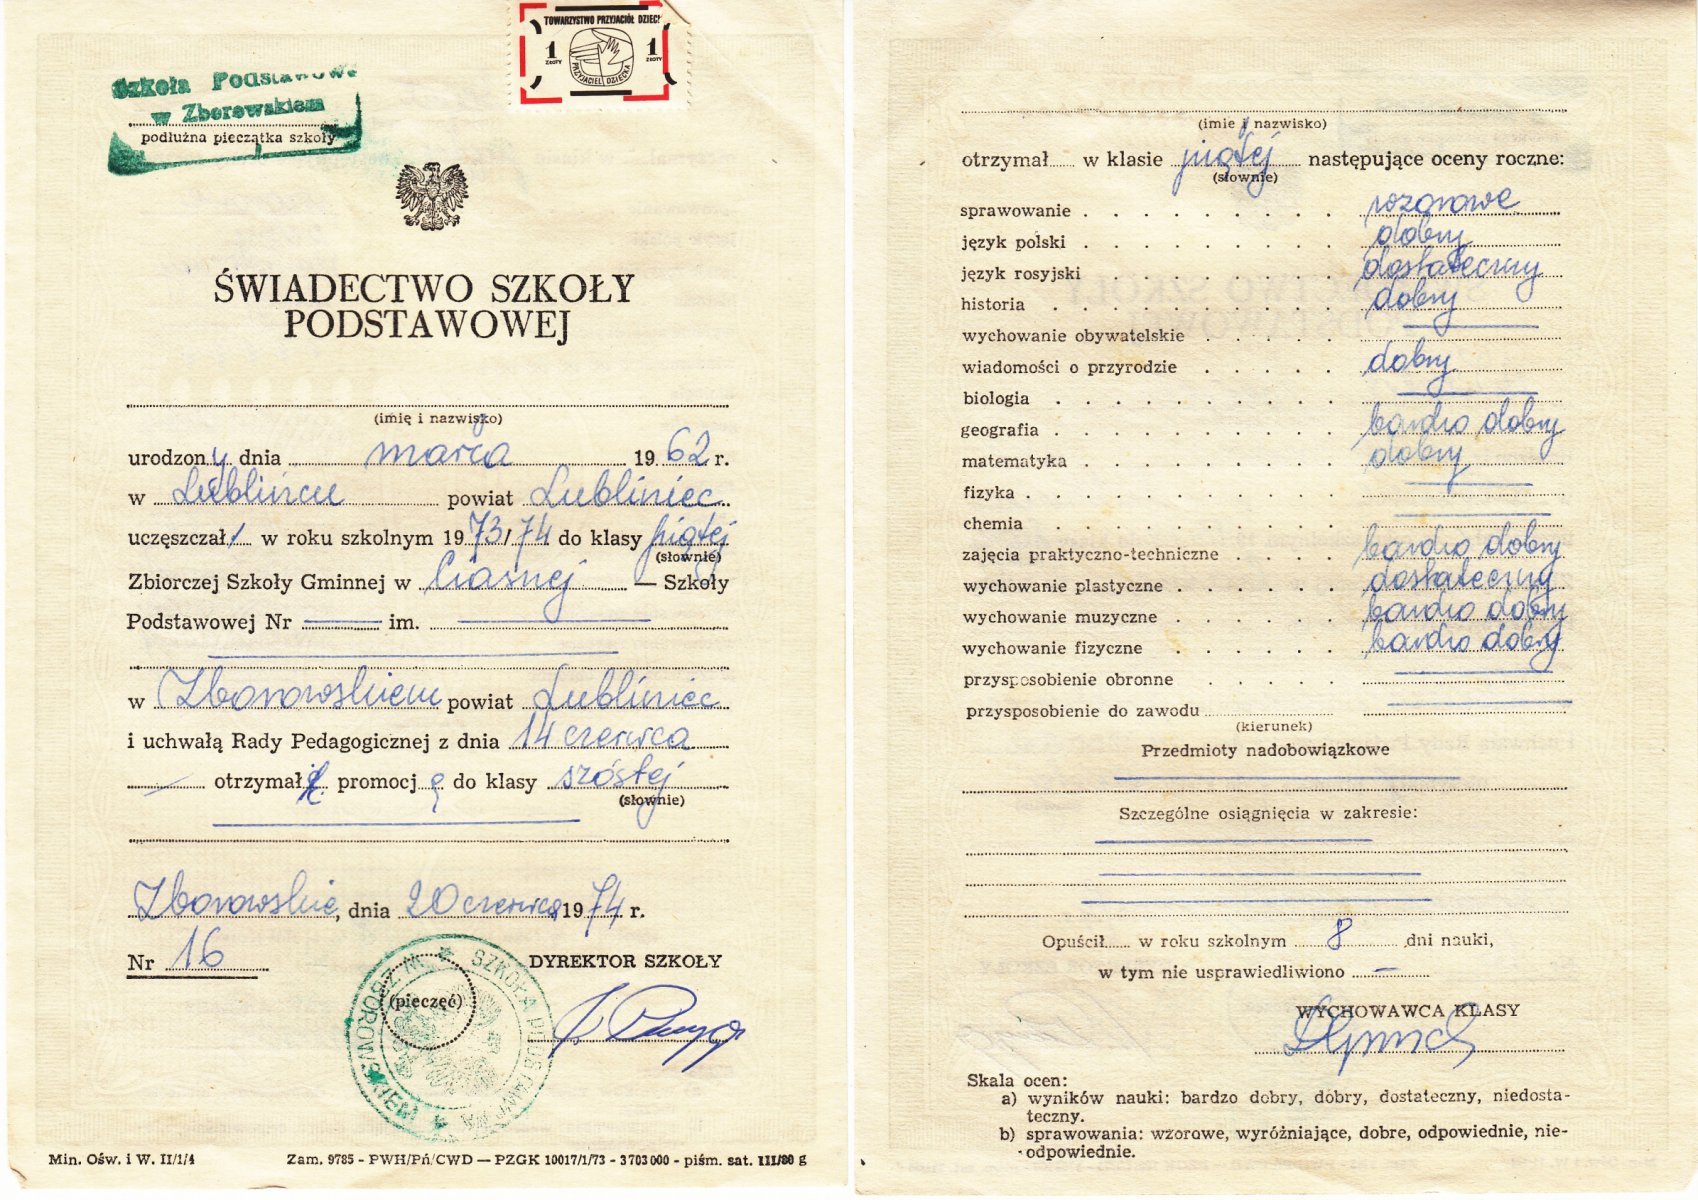 TOWARZYSTWO PRZYJACIÓŁ DZIECI
1 ZŁOTY
1 ZŁOTY
PRZYJACIEL DZIECKA
Szkoła Podstawowa
w Zborowskiem
podłużna pieczątka szkoły
ŚWIADECTWO SZKOŁY
PODSTAWOWEJ
(imię i nazwisko)
urodzony dnia marca 1962 r.
w Lublińcu powiat Lubliniec
uczęszczał w roku szkolnym 1973/74 do klasy piątej
(słownie)
Zbiorczej Szkoły Gminnej w Ciasnej — Szkoły
Podstawowej Nr — im. —
w Zborowskiem powiat Lubliniec
i uchwałą Rady Pedagogicznej z dnia 14 czerwca
— otrzymał promocję do klasy szóstej
(słownie)
Zborowskie, dnia 20 czerwca 1974 r.
Nr 16
DYREKTOR SZKOŁY
(pieczęć)
SZKOŁA PODSTAWOWA W ZBOROWSKIEM
Min. Ośw. i W. II/1/4 Zam. 9785 - PWH/Pń/CWD — PZGK 10017/1/73 - 3703000 - piśm. sat. III/80 g
(imię i nazwisko)
otrzymał w klasie piątej następujące oceny roczne:
(słownie)
sprawowanie wzorowe
język polski dobry
język rosyjski dostateczny
historia dobry
wychowanie obywatelskie —
wiadomości o przyrodzie dobry
biologia —
geografia bardzo dobry
matematyka dobry
fizyka —
chemia —
zajęcia praktyczno-techniczne bardzo dobry
wychowanie plastyczne dostateczny
wychowanie muzyczne bardzo dobry
wychowanie fizyczne bardzo dobry
przysposobienie obronne —
przysposobienie do zawodu —
(kierunek)
Przedmioty nadobowiązkowe
Szczególne osiągnięcia w zakresie:
Opuścił w roku szkolnym 8 dni nauki,
w tym nie usprawiedliwiono —
WYCHOWAWCA KLASY
Skala ocen:
a) wyników nauki: bardzo dobry, dobry, dostateczny, niedosta-
teczny.
b) sprawowania: wzorowe, wyróżniające, dobre, odpowiednie, nie-
odpowiednie.